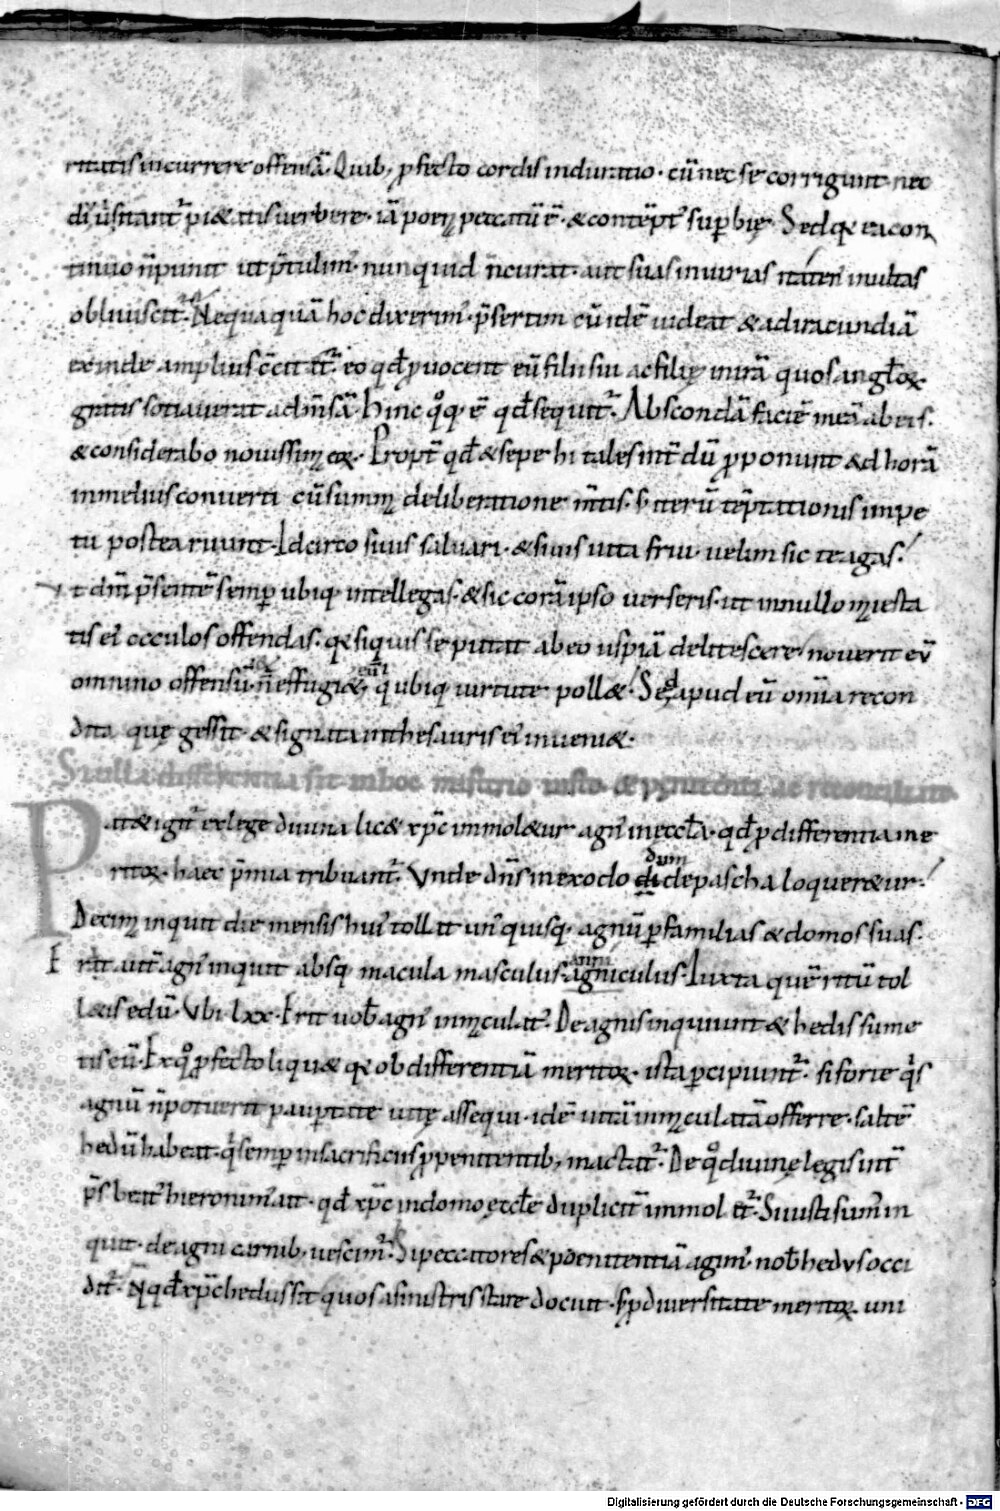 ritatis incurrere offensā. Quib; pfecto cordis induratio. cū nec se corrigunt nec
di ūsitant᷑ pi&atis uerbere. iā poenę peccatū ē. & contēpt᷑ supbię. Sed qa ea con
tinuo n̄ punit ut p̄tulim᷒. nunquid n̄ curat. aut suas iniurias multas
obliuiscit᷑. Nequaquā hoc dixerim᷒. p̄sertim cū idē uideat & ad iracundiā
exinde amplius eo qđ puocent eū filii sui ac filię in irā quos anglоꝝ
gratis sociauerat ad m̄sā. Hinc qͦq; ē qđ sequit᷑. Abscondā faciē meā ab eis.
& considerabo nouissima eoꝝ. Propt̄ qđ & sepe hi tales int̄dū pponunt & ad horā
in melius conuerti cū summa deliberatione m̄tis. s; iterū tēptationis impe
tu postea ruunt. Idcirco si uis saluari. & si uis uita frui. uelim sic te agas.
Vt dm̄ p̄sentē semp ubiq; intellegas. & sic corā ipso uerseris. ut in nullo maiesta
tis ei᷒ occulos offendas. qa si quis se putat ab eo uspiā delitescere nouerit eū
omnino offensū n̄ effugiat eū qui ubiq; uirtute poll&. Sed apud eū om̄ia recon
dita quę gessit. & signata in thesauris ei᷒ inueni&.
S i ulla differentia sit in hoc misterio iusto & pęnitenti ac reconciliato
Pat& igit᷑ ex lege diuina lic& xp̄c immol&ur agn᷒ in eccl̄a. qđ p differentia me
ritoꝝ. haec p̄mia tribuant᷑. Unde dn̄s in exodo dum de pascha loquer&ur.
Decima inquit die mensis hui᷒ tollat un᷒quisq; agnū p familias & domos suas.
Erit aut̄ agn᷒ inquit absq; macula masculus anniculus. Iuxta quē ritū tol
l&is edū. Ubi lxx. Erit uoƀ agn᷒ inmaculat᷒. De agnis inquiunt & hedis sume
tis eū. Ex qͦ pfecto liqu& qa ob differentiā meritoꝝ. ista pcipiunt᷑. si forte qͥs
agnū n̄ potuerit paup̄tate uitę assequi. idē uitā inmaculatā offerre. saltē
hedū habeat. qͥ semp in sacrificiis p penitentib; mactat᷑. De qͦ diuinę legis int̄
p̄s beat᷒ hieronim᷒ ait. qđ xp̄c in domo ęccl̄e duplicit̄ immolet᷑. Si iusti sum᷒ in
quit. de agni carnib; uescim᷒. Si peccatores & poenitentiā agim᷒. noƀ hedus occi
dit᷑. N̄ qđ xp̄c hedus sit quos a sinistris stare docuit. s; p diuersitate meritoꝝ. uni
Digitalisierung gefördert durch die Deutsche Forschungsgemeinschaft - DFG